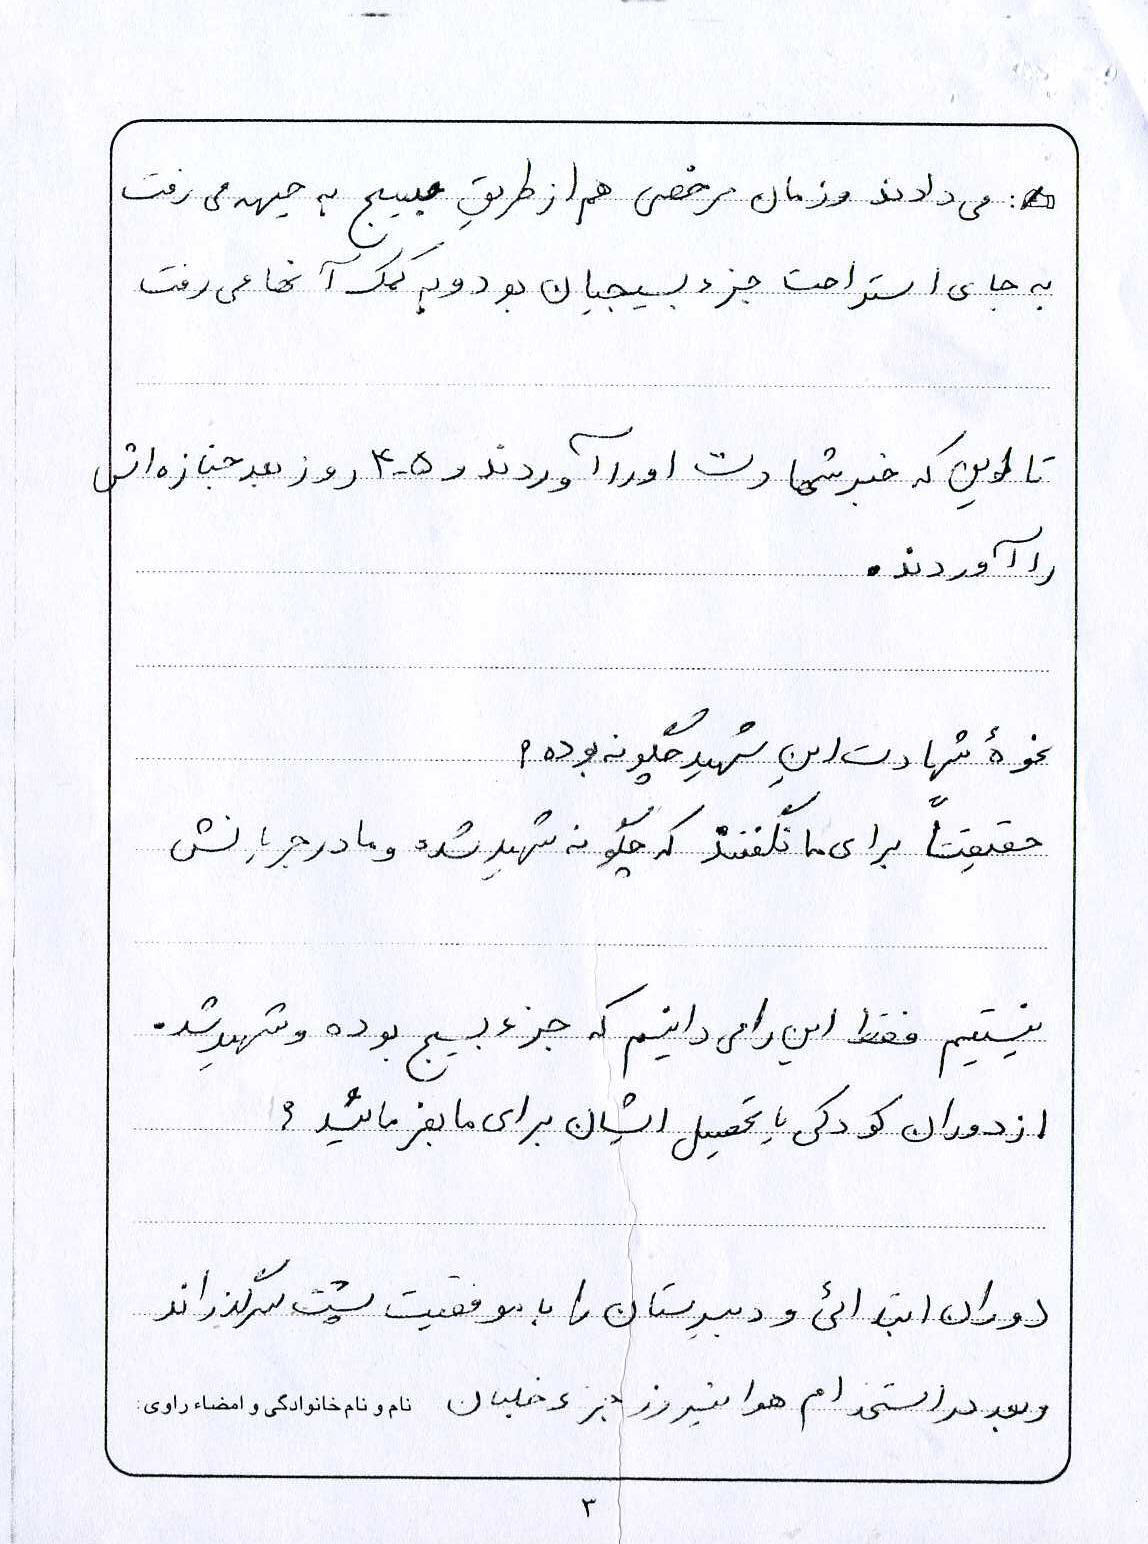 می دادند و زمان مرخصی هم از طریق بسیج به جبهه می رفت
به جای استراحت جزء بسیجیان بود و به کمک آنها می رفت
تا این که خبر شهادت او را آوردند و ۵-۴ روز بعد جنازه اش
را آوردند.
نحوهٔ شهادت این شهید چگونه بوده؟
حقیقتاً برای ما نگفتند که چگونه شهید شده و ما در جریانش
نیستیم فقط این را می دانیم که جزء بسیج بوده و شهید شد.
از دوران کودکی یا تحصیل ایشان برای ما بفرمائید؟
دوران ابتدائی و دبیرستان را با موفقیت پشت سر گذراند
و بعد در استخدام هوانیروز جزء خلبان
نام و نام خانوادگی و امضاء راوی:
۳